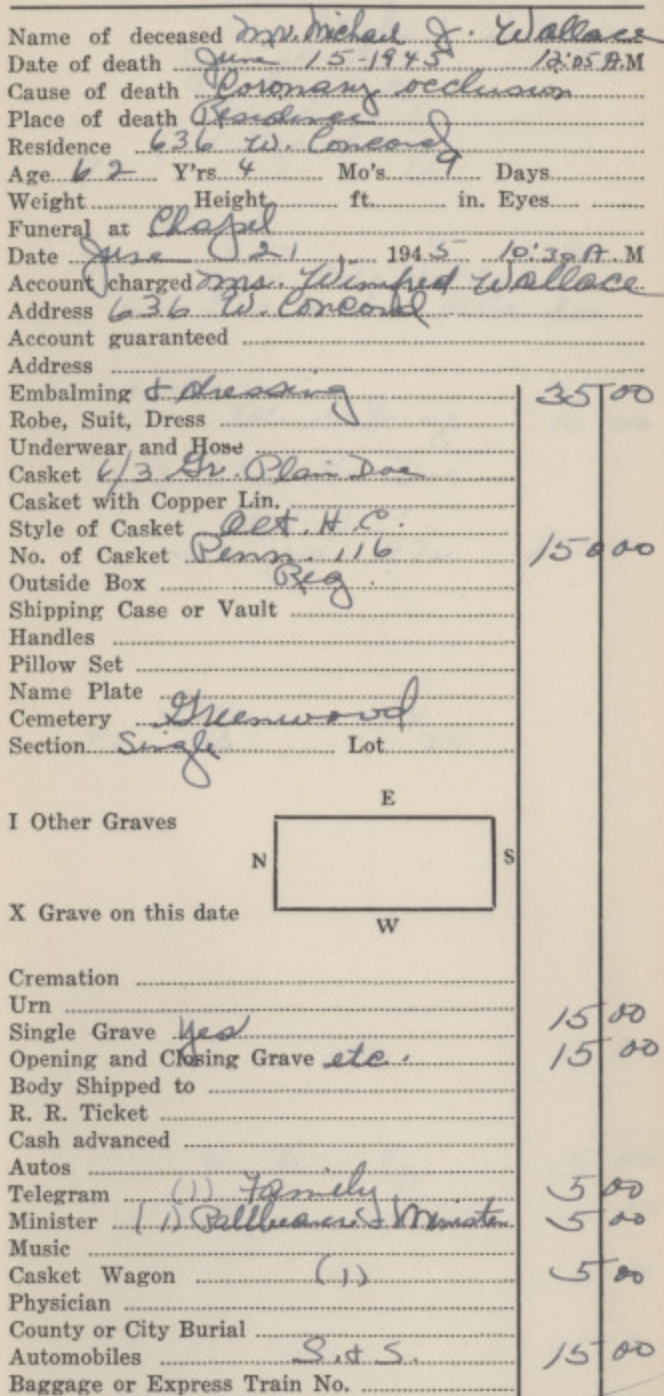 Name of deceased Mr. Michael J. Wallace
Date of death June 15-1945 12:05 A.M
Cause of death Coronary occlusion
Place of death Residence
Residence 636 W. Concord
Age 62 Y'rs. 4 Mo's 9 Days
Weight Height ft. in. Eyes
Funeral at Chapel
Date June 21, 1945 10:30 A.M
Account charged Mrs. Winifred Wallace
Address 636 W. Concord
Account guaranteed
Address
Embalming & dressing 35 00
Robe, Suit, Dress
Underwear and Hose
Casket 6/3 Gr. Plain Doe
Casket with Copper Lin.
Style of Casket Oct. H.C.
No. of Casket Penn. 116 150 00
Outside Box Reg.
Shipping Case or Vault
Handles
Pillow Set
Name Plate
Cemetery Greenwood
Section Single Lot
E
I Other Graves
N S
X Grave on this date
W
Cremation
Urn
Single Grave Yes 15 00
Opening and Closing Grave etc. 15 00
Body Shipped to
R. R. Ticket
Cash advanced
Autos
Telegram (1) Family 5 00
Minister (1) Pallbearers & Minister 5 00
Music
Casket Wagon (1) 5 00
Physician
County or City Burial
Automobiles S. & S. 15 00
Baggage or Express Train No.